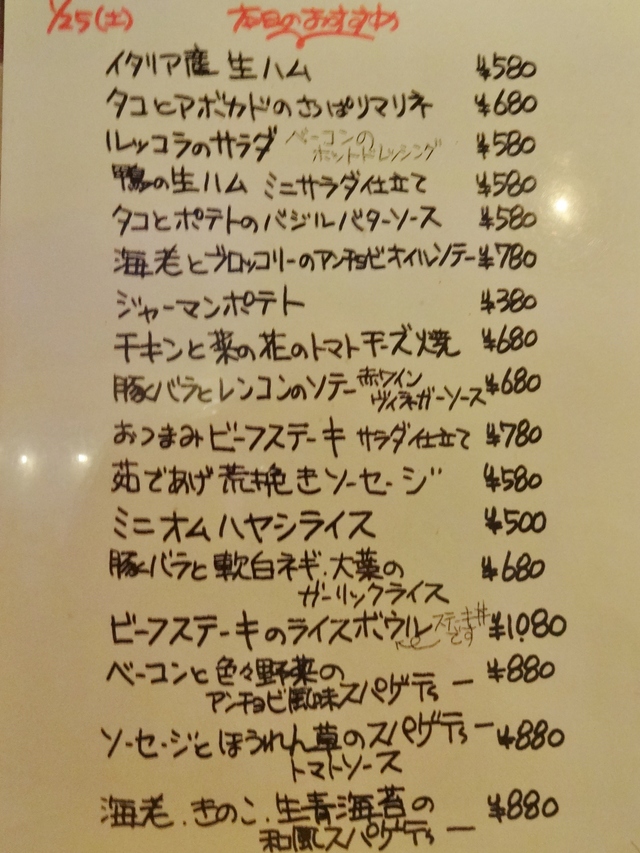 1/25(土) 本日のおすすめ
イタリア産 生ハム ¥580
タコとアボカドのさっぱりマリネ ¥680
ルッコラのサラダ ベーコンの ¥580
ホットドレッシング
鴨の生ハム ミニサラダ仕立て ¥580
タコとポテトのバジルバターソース ¥580
海老とブロッコリーのアンチョビオイルソテー ¥780
ジャーマンポテト ¥380
チキンと菜の花のトマトチーズ焼 ¥680
豚バラとレンコンのソテー 赤ワイン ¥680
ヴィネガーソース
おつまみビーフステーキ サラダ仕立て ¥780
茹であげ荒挽きソーセージ ¥580
ミニオムハヤシライス ¥500
豚バラと軟白ネギ.大葉の ¥680
ガーリックライス
ビーフステーキのライスボウル ステーキ丼 ¥1080
です
ベーコンと色々野菜の ¥880
アンチョビ風味スパゲティー
ソーセージとほうれん草のスパゲティー ¥880
トマトソース
海老.きのこ.生青海苔の ¥880
和風スパゲティー